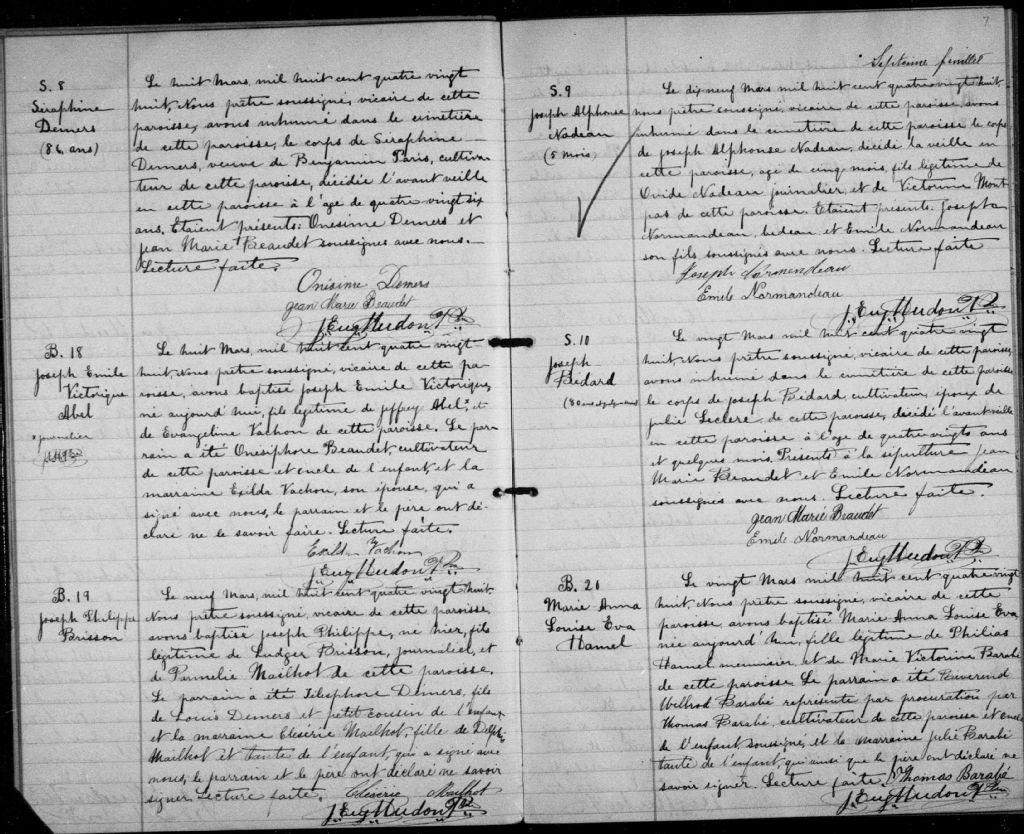 S. 8
Séraphine
Demers
(86 ans)
Le huit Mars, mil huit cent quatre vingt
huit, Nous prêtre soussigné, vicaire de cette
paroisse, avons inhumé dans le cimetière
de cette paroisse, le corps de Séraphine
Demers, veuve de Benjamin Paris, cultiva-
teur de cette paroisse, décédée l'avant veille
en cette paroisse à l'âge de quatre vingt six
ans. Etaient présents: Onésime Demers et
Jean Marie Beaudet soussignés avec nous.
Lecture faite.
Onésime Demers
Jean Marie Beaudet
J. Eug Hudon Ptre
B. 18
Joseph Emile
Victorique
Abel
x journalier
Le huit Mars, mil huit cent quatre vingt
huit, Nous prêtre soussigné, vicaire de cette pa-
roisse, avons baptisé Joseph Emile Victorique,
né aujourd'hui, fils légitime de Jeffrey Abel x et
de Evangeline Vachon de cette paroisse. Le par-
rain a été Onésiphore Beaudet, cultivateur
de cette paroisse et oncle de l'enfant et la
marraine Exilda Vachon, son épouse, qui a
signé avec nous, le parrain et le père ont dé-
claré ne le savoir faire. Lecture faite.
Exilda Vachon
J. Eug Hudon Ptre
B. 19
Joseph Philippe
Brisson
Le neuf Mars, mil huit cent quatre vingt huit,
Nous prêtre soussigné, vicaire de cette paroisse,
avons baptisé Joseph Philippe, né hier, fils
légitime de Ludger Brisson, journalier, et
de Parmelie Mailhot de cette paroisse.
Le parrain a été Télesphore Demers, fils
de Louis Demers et petit cousin de l'enfant
et la marraine Eleserie Mailhot, fille de
Mailhot et tante de l'enfant, qui a signé avec
nous, le parrain et le père ont déclaré ne savoir
signer. Lecture faite. Eleserie Mailhot
J. Eug Hudon Ptre
7
Septième feuillet
S. 9
Joseph Alphonse
Nadeau
(5 mois)
Le dix neuf Mars, mil huit cent quatre vingt huit,
nous prêtre soussigné, vicaire de cette paroisse avons
inhumé dans le cimetière de cette paroisse le corps
de Joseph Alphonse Nadeau, décédé la veille en
cette paroisse, agé de cinq mois, fils légitime de
Ovide Nadeau journalier, et de Victorine Mont-
pas de cette paroisse. Etaient présents: Joseph
Normandeau, bedeau, et Emile Normandeau
son fils soussignés avec nous. Lecture faite
Joseph Normendeau
Emile Normandeau
J. Eug Hudon Ptre
S. 10
Joseph
Bédard
(80 ans et quelques mois)
Le vingt Mars mil huit cent quatre vingt
huit, Nous prêtre soussigné, vicaire de cette paroisse,
avons inhumé dans le cimetière de cette paroisse
le corps de Joseph Bédard, cultivateur, époux de
Julie Leclerc de cette paroisse, décédé l'avant veille
en cette paroisse à l'âge de quatre vingts ans
et quelques mois. Présents à la sépulture Jean
Marie Beaudet et Emile Normandeau
soussignés avec nous. Lecture faite.
Jean Marie Beaudet
Emile Normandeau
J. Eug Hudon Ptre
B. 20
Marie Anna
Louise Eva
Hamel
Le vingt Mars mil huit cent quatre vingt
huit, Nous prêtre soussigné, vicaire de cette
paroisse, avons baptisé Marie Anna Louise Eva
née aujourd'hui, fille légitime de Philias
Hamel meunier, et de Marie Victorine Barabé
de cette paroisse. Le parrain a été Révérend
Wilbrod Barabé représenté par procuration par
Thomas Barabé, cultivateur de cette paroisse et oncle
de l'enfant, soussigné, et la marraine Julie Barabé
tante de l'enfant, qui ainsi que le père ont déclaré ne
savoir signer. Lecture faite. Thomas Barabé
J. Eug Hudon Ptre